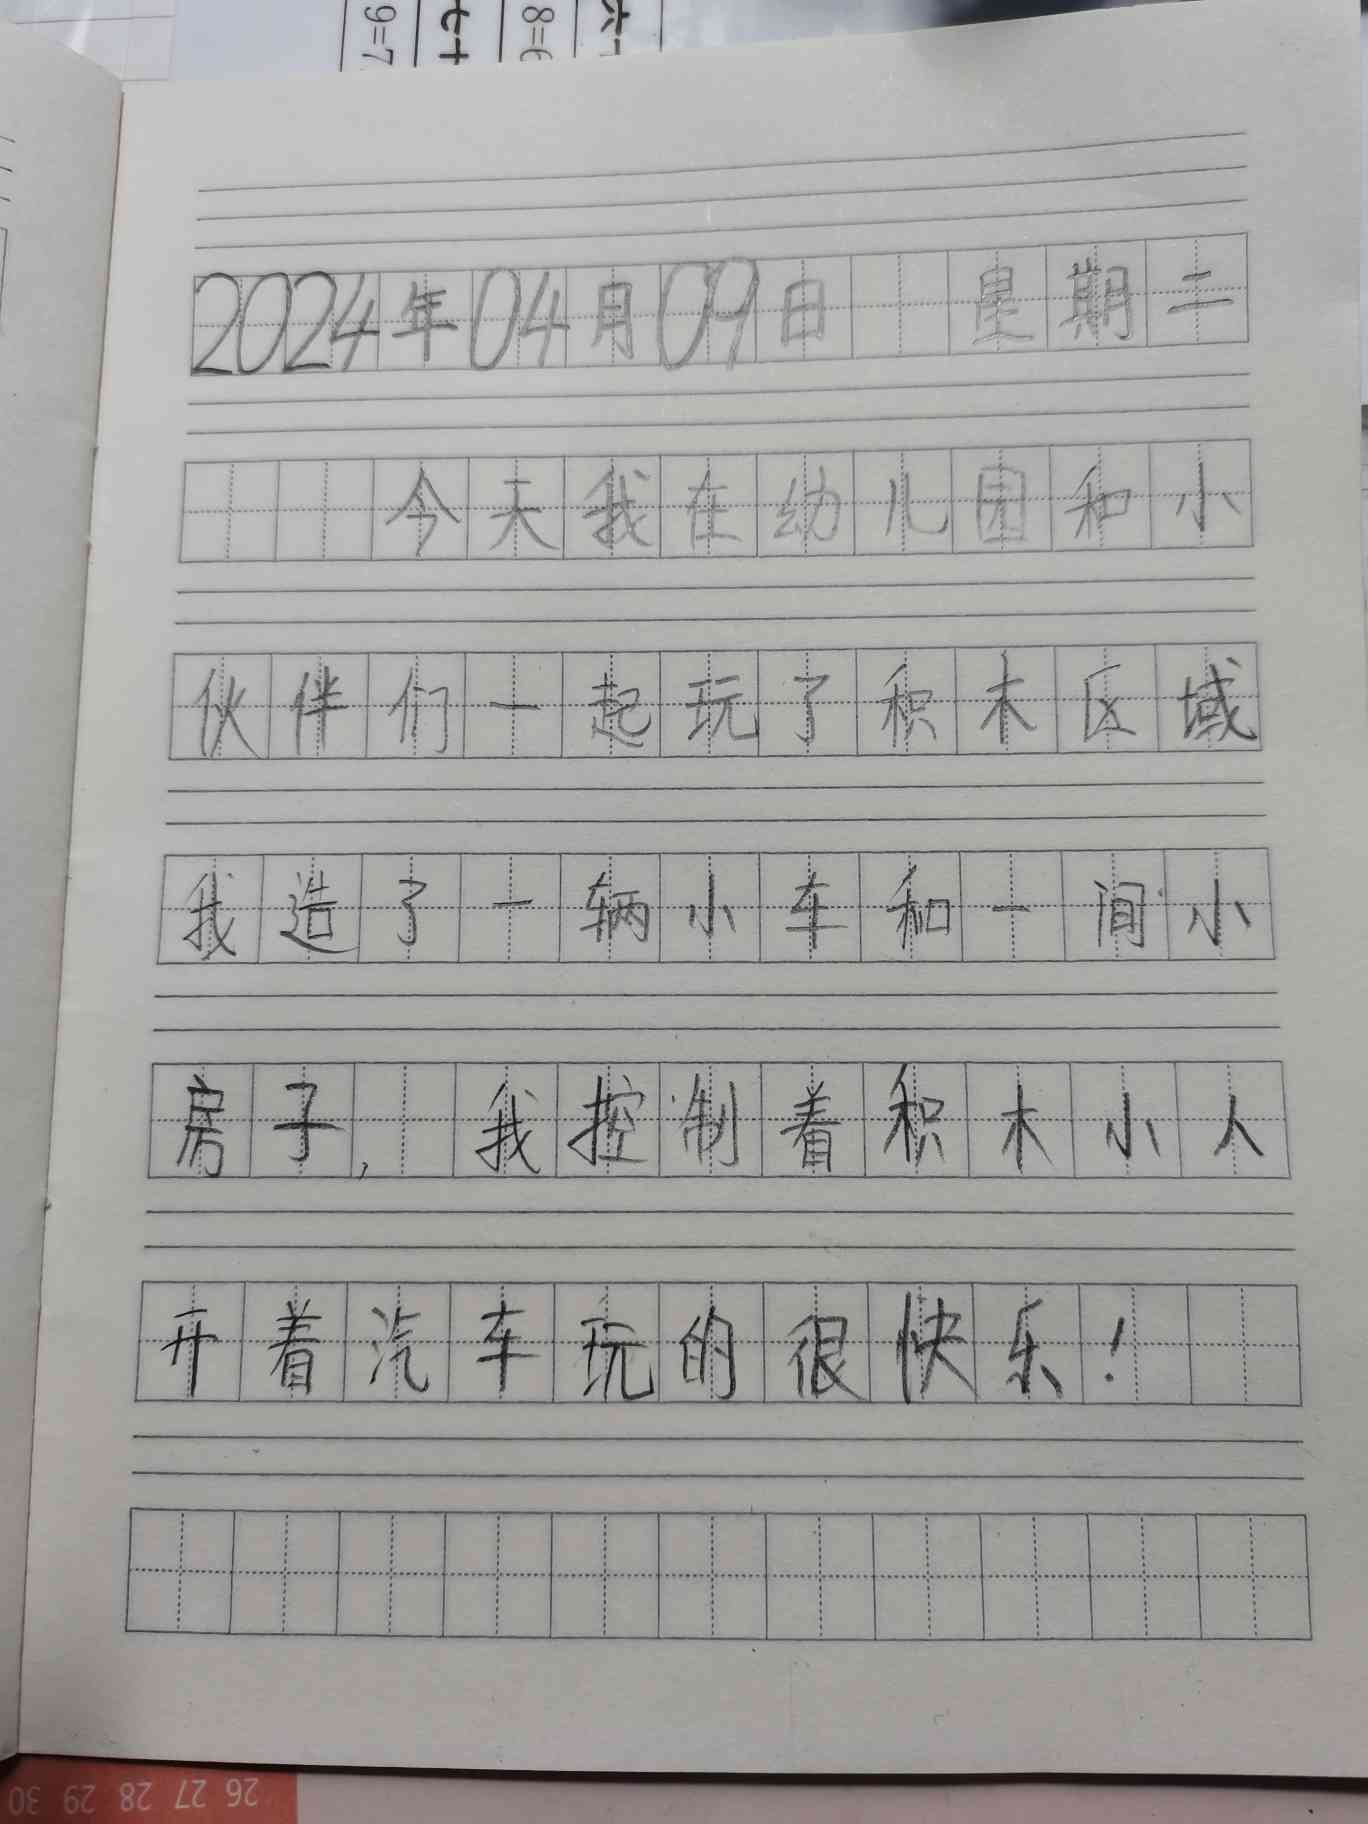 9=7 七十 8=6 六十
2024年04月09日 星期二
今天我在幼儿园和小
伙伴们一起玩了积木区域
我造了一辆小车和一间小
房子, 我控制着积木小人
开着汽车玩的很快乐!
26 27 28 29 30